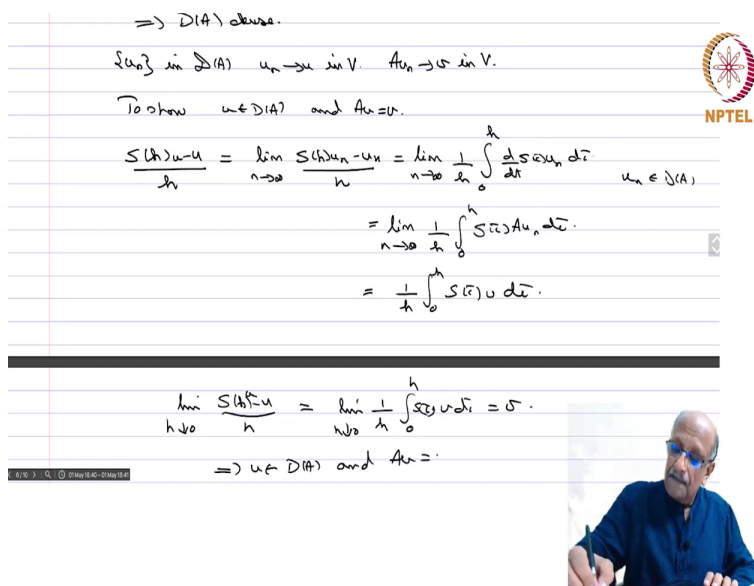 => D(A) dense.
{uₙ} in D(A) uₙ → u in V. Auₙ → v in V.
To show u ∈ D(A) and Au = v.
NPTEL
(S(h)u - u)/h = lim_{n→∞} (S(h)uₙ - uₙ)/h = lim_{n→∞} 1/h ∫₀ʰ d/dτ S(τ)uₙ dτ. uₙ ∈ D(A)
= lim_{n→∞} 1/h ∫₀ʰ S(τ)Auₙ dτ.
= 1/h ∫₀ʰ S(τ)v dτ.
lim_{h↓0} (S(h)u - u)/h = lim_{h↓0} 1/h ∫₀ʰ S(τ)v dτ = v.
=> u ∈ D(A) and Au =
6 / 10 01 May 18:40 - 01 May 18:41